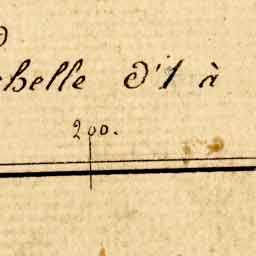 chelle d'1 à
200.